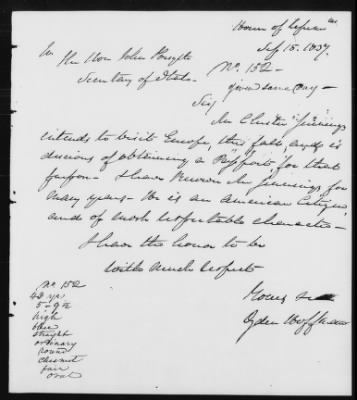 House of Represves
Sep 15. 1837.
To the Hon John Forsyth
Secretary of State
No. 152 -
given same day -
Sir
Mr Chester Jennings
intends to visit Europe, this fall, and is
desirous of obtaining a "Passport" for that
purpose - I have known Mr Jennings for
many years - He is an American Citizen
and of most respectable character -
I have the honor to be
with much respect
Yours &c
Ogden Hoffman
No 152
42 yrs
5 - 9 in
high
blue
straight
ordinary
round
chesnut
fair
oval